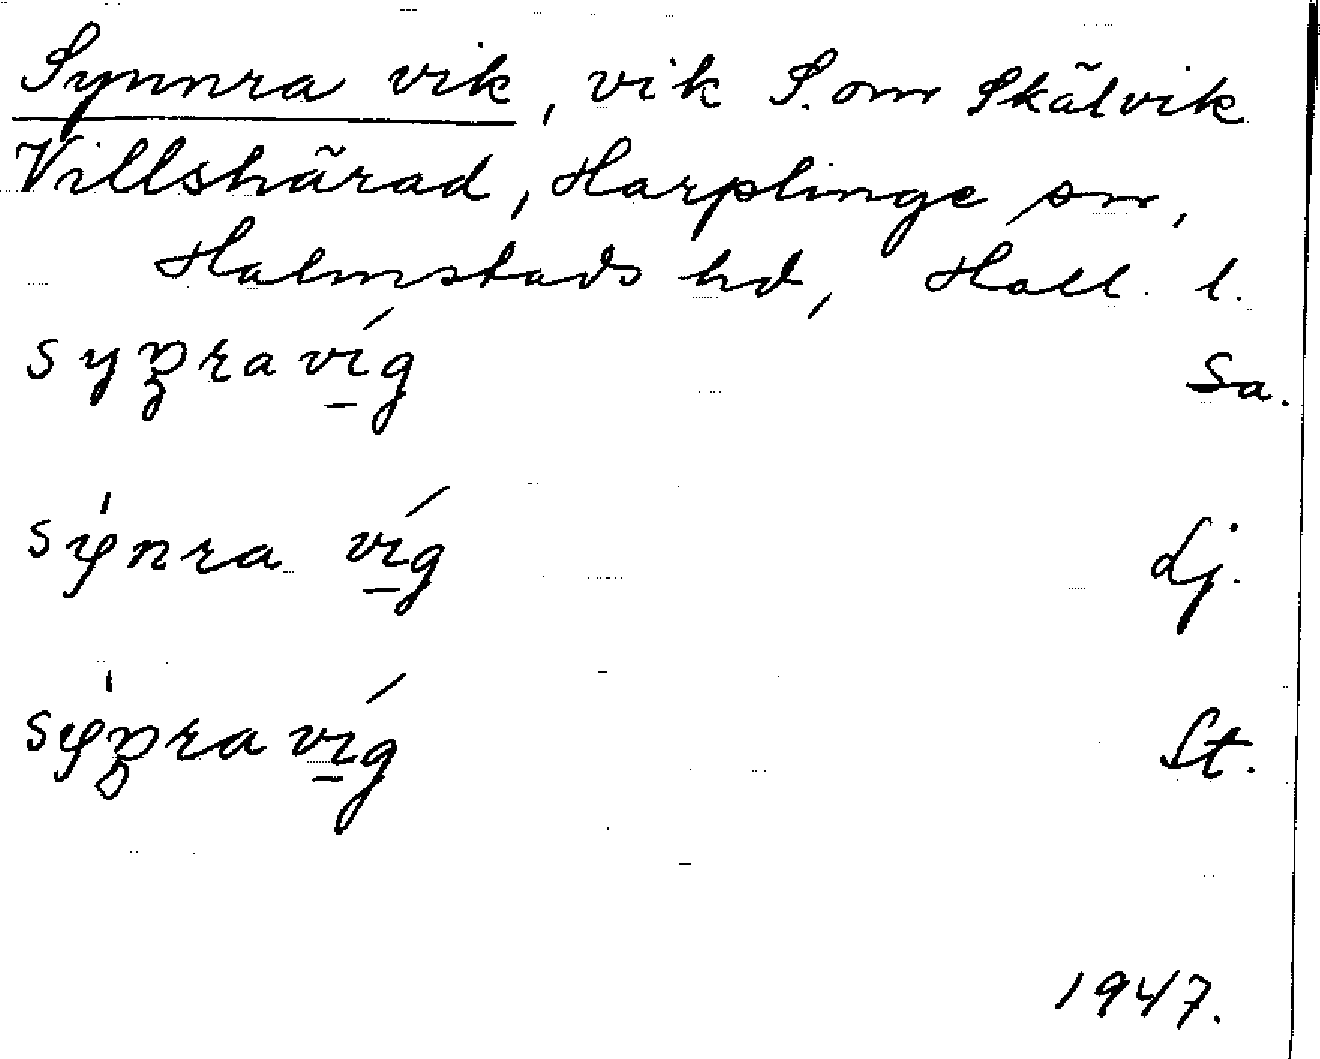 Synnra vik, vik S. om Skälvik
Villshärad, Harplinge sn,
Halmstads hd, Hall. l.
syn̥ravíg Sa.
sýnra víg Lj.
sýn̥ravíg St.
1947.